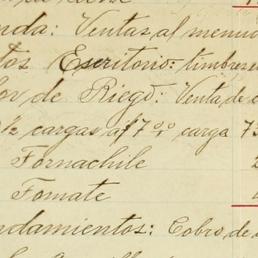 nda: Ventas al menud
tos Escritorio: timbres
or de Riego: Venta de
½ cargas a $7.00 carga 73
Fornachile 2
Fomate
ndamientos: Cobro de